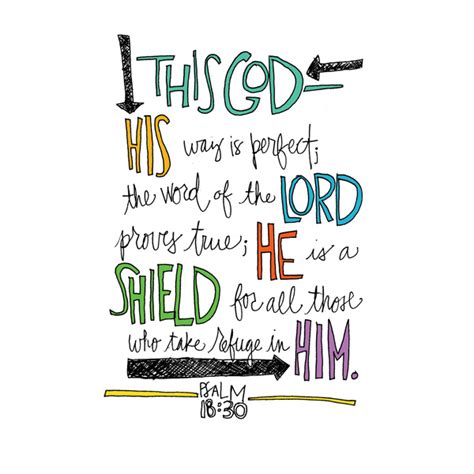 THIS GOD—
HIS way is perfect;
the word of the LORD
proves true; HE is a
SHIELD for all those
who take refuge in HIM.
PSALM
18:30